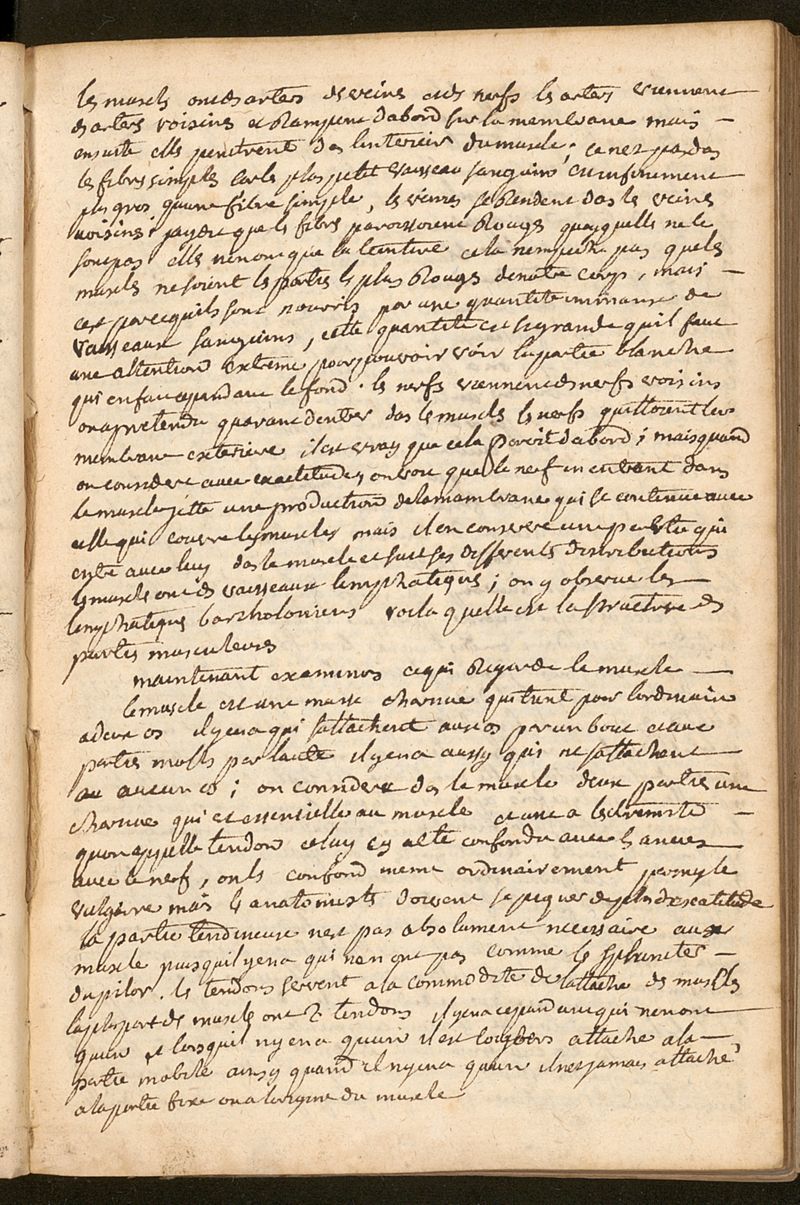 les muscls ont des arters des veines et des nerfs les arters viennent
des arters voisines et Rampent d'abord sur la membrane mais
ensuite elle penetrent das linterieur du muscle, ce nest pas das
les fibres simples car le plus petit vaisseau sanguin est infinement
plus gros quune fibre simple, les veines se Rendent das le veines
voisines. jay dit que les fibres paroissoient Rouges quoyquelle ne le
sont pas elle nen ont que la teinture cela nempeche pas que les
muscls ne soient les parties le plus Rouges de notre corps, mais
cest parcequils sont nourris par une quantité immanse de
vaisseaux sanguins, cette quantité est sy grande quil faut
une attention extreme pour pouvoir voir la partie blanche
qui en fait cependant le fond. les nerfs viennent des nerfs voisins
on a pretendu quavant dentrer das le muscls les nerfs quittoient leur
membrane exterieure il est vray que cela paroit dabord; mais quand
on considere avec exactitude, on voit que le nerf en entrant dans
le muscle jette une production de la membrane qui se continue avec
celle qui couvre les muscles mais il en conserve une partie qui
entre avec luy das le muscle et suit ses differents distributions
les muscls ont des vaisseaux limphatiques; on y observe les
limphatiques bartholoniens voila quelle est la structure des
parties musculeuses
maintenant examinons ce qui Regarde le muscle
le muscle est une masse charnue qui tient pour lordinaire
a deux os il y en a qui sattachent aux os par un bout et aux
parties molles par lautre il y en a aussy qui ne sattachent
au aucun os; on considere das le muscle deux parties une
charnue qui est essentielle au muscle et une a lextremité
quon appelle tendon celuy cy a eté confondu avec les anciens
avec le nerf, on le confond meme ordinairement parmy le
vulgaire mais les anatomists doivent se piquer de plus dexactitude
la partie tendineuse nest pas absolument necessaire aux
muscle puisquil y en a qui nen ont pas comme le sphincter
du pilor. les tendons servent a la commodité de lattache des muscles
la pluspart des muscle ont 2 tendons il y en a cependant qui nen ont
quun et lorsquil ny en a quun il est toujours attaché a la
partie mobile ainsy quand il ny en a quun il nest jamais attaché
a la partie fixe ou a lorigine du muscle